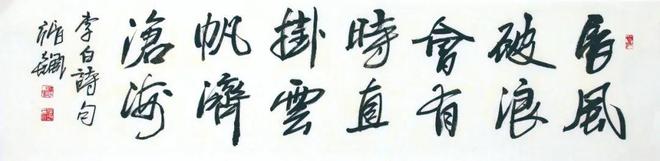 長風
破浪
會有
時直
掛雲
帆濟
滄海
李白詩句